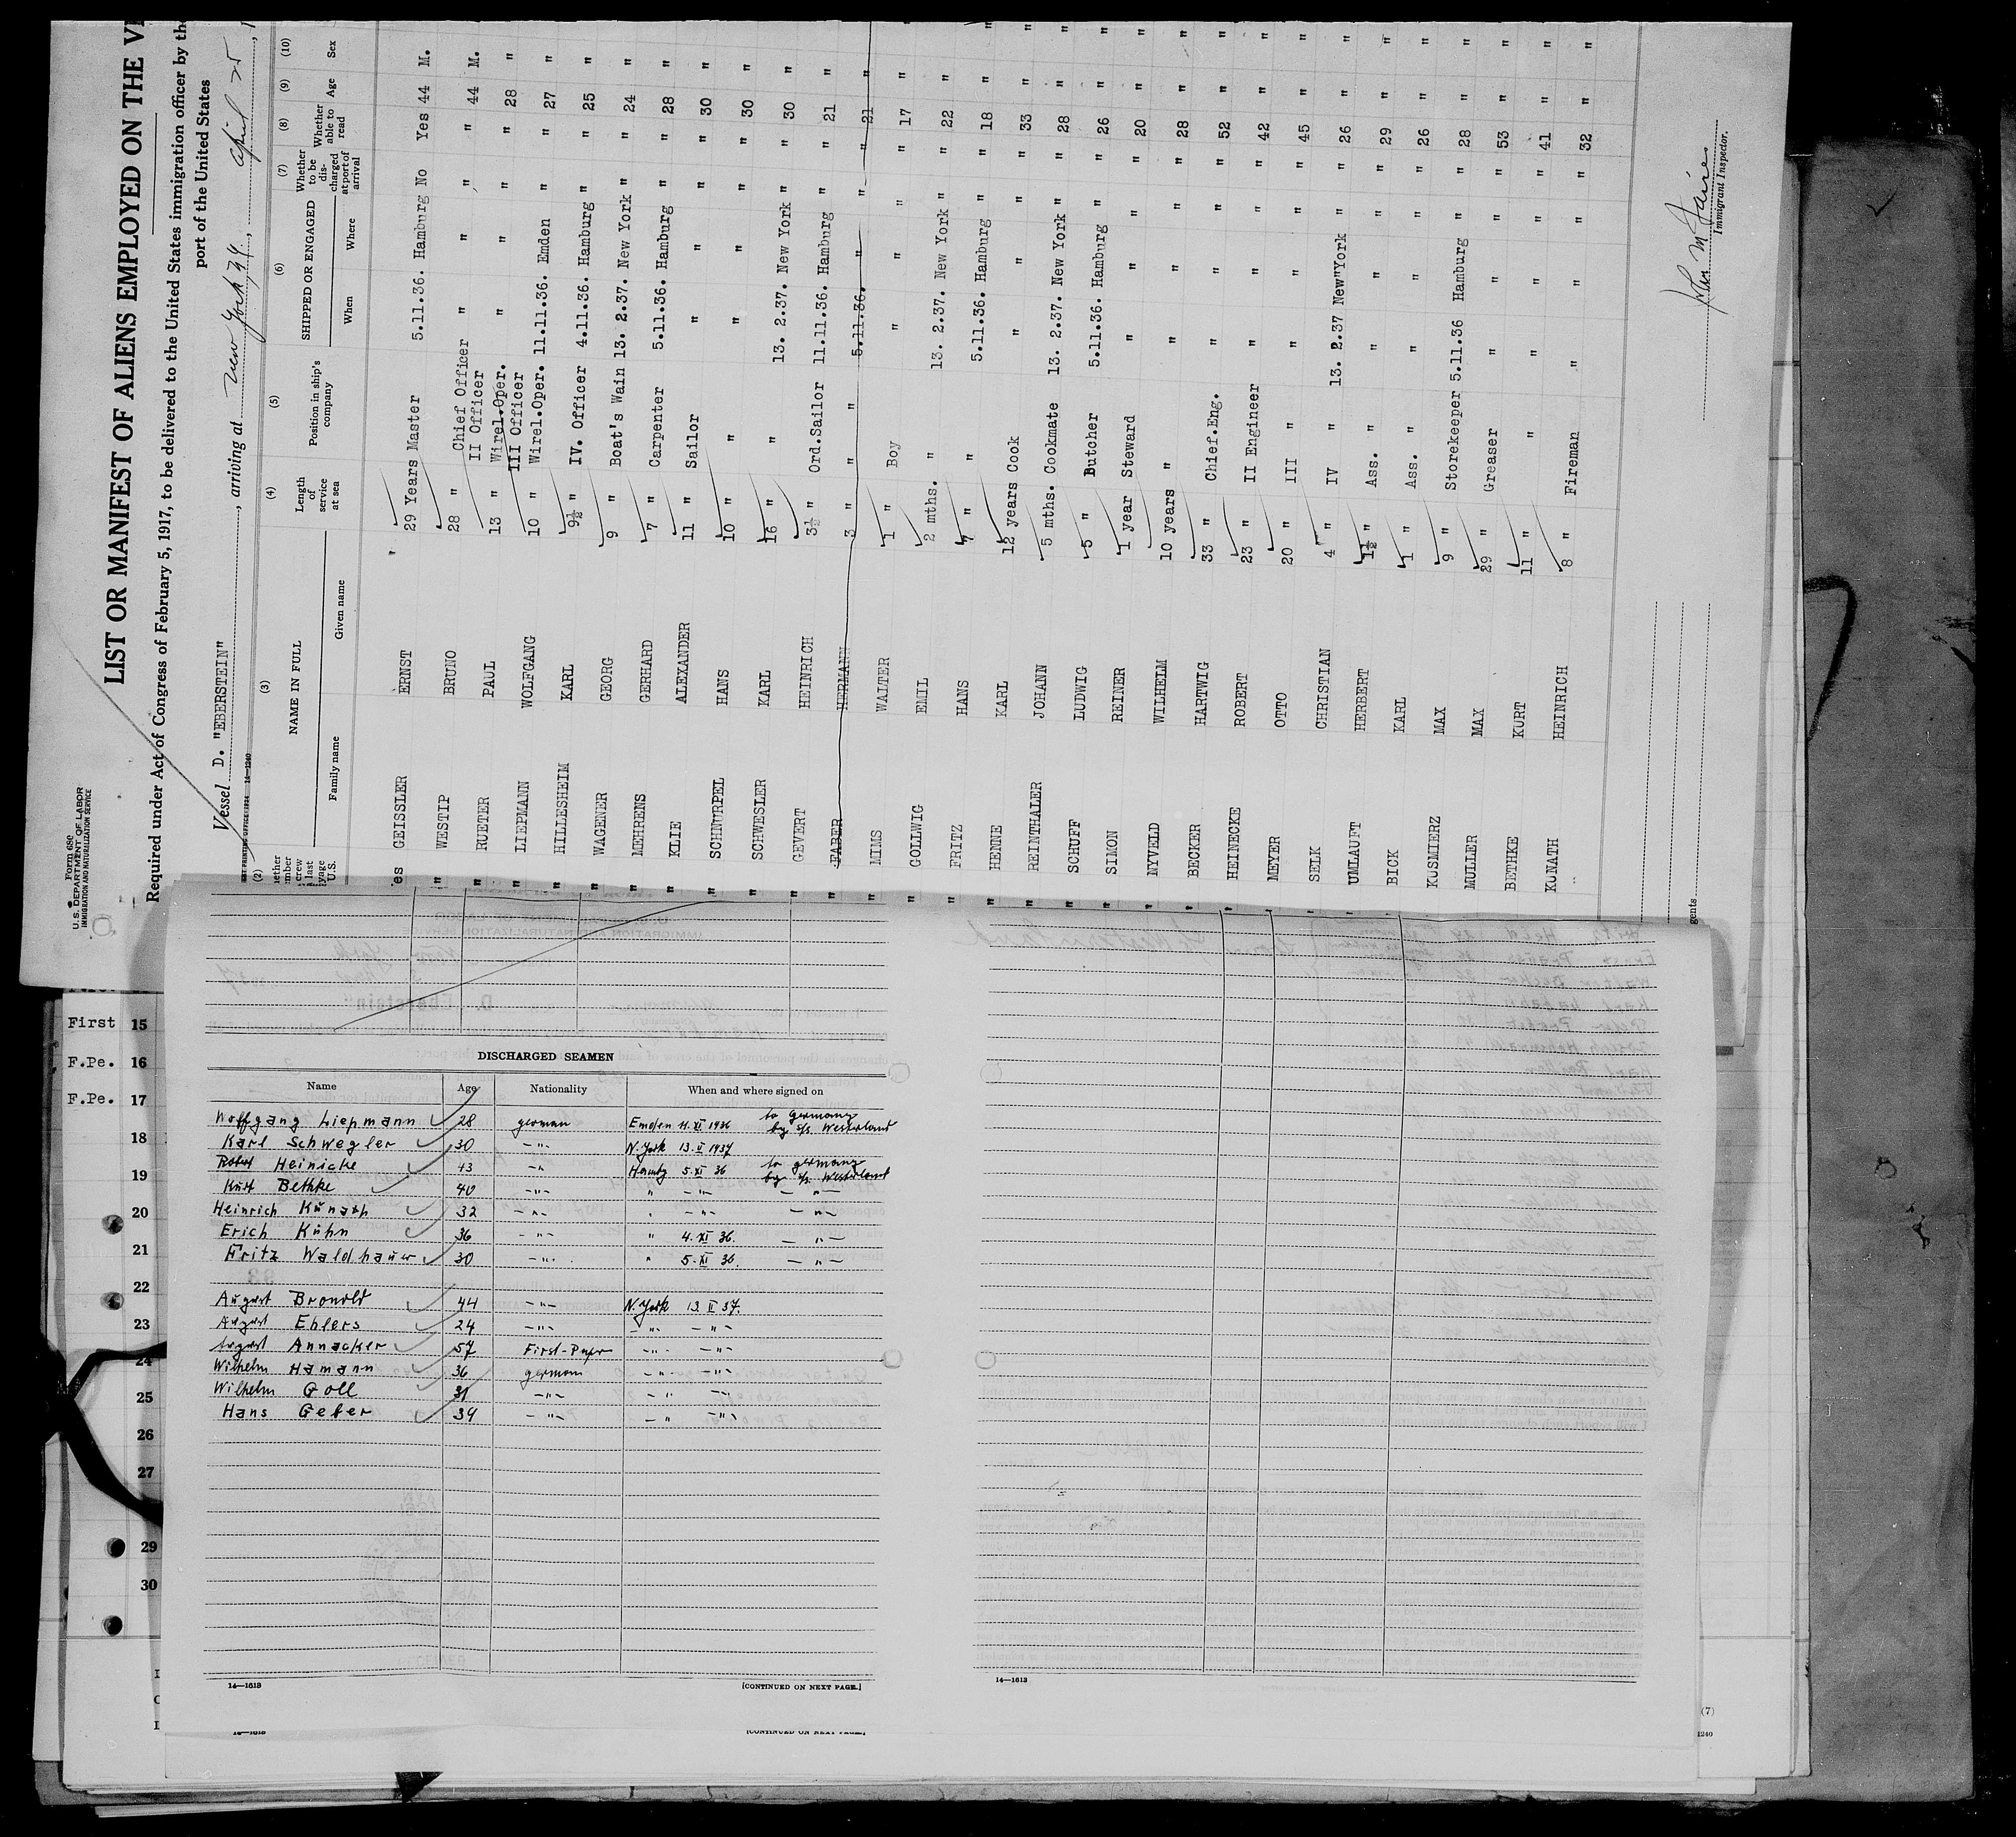 Form 689
U. S. DEPARTMENT OF LABOR
IMMIGRATION AND NATURALIZATION SERVICE
LIST OR MANIFEST OF ALIENS EMPLOYED ON THE
Required under Act of Congress of February 5, 1917, to be delivered to the United States immigration officer by the
port of the United States
Vessel D. "EBERSTEIN", arriving at New York N.Y., April 25
(2) (3) (4) (5) (6) (7) (8) (9) (10)
NAME IN FULL Length of service at sea Position in ship's company SHIPPED OR ENGAGED Whether to be discharged at port of arrival Whether able to read Age Sex
Family name Given name When Where
GEISSLER ERNST 29 Years Master 5.11.36. Hamburg No Yes 44 M.
" WESTIP BRUNO 28 " Chief Officer " " " " 44 M.
" RUETER PAUL 13 " II Officer Wirel.Oper. " " " " 28 "
" LIEPMANN WOLFGANG 10 " III Officer Wirel.Oper. 11.11.36. Emden " " 27 "
" HILLESHEIM KARL 9½ " IV. Officer 4.11.36. Hamburg " " 25 "
" WAGENER GEORG 9 " Boat's Wain 13. 2.37. New York " " 24 "
" MEHRENS GERHARD 7 " Carpenter 5.11.36. Hamburg " " 28 "
" KLIE ALEXANDER 11 " Sailor " " " " 30 "
" SCHNURPEL HANS 10 " " " " " " 30 "
" SCHWESLER KARL 16 " " 13. 2.37. New York " " 30 "
" GEVERT HEINRICH 3½ " Ord.Sailor 11.11.36. Hamburg " " 21 "
" FABER HERMANN 3 " " 5.11.36. " " " 21 "
" MIMS WALTER 1 " Boy " " " " 17 "
" GOLLWIG EMIL 2 mths. " 13. 2.37. New York " " 22 "
" FRITZ HANS 7 " " 5.11.36. Hamburg " " 18 "
" HENNE KARL 12 years Cook " " " " 33 "
" REINTHALER JOHANN 5 mths. Cookmate 13. 2.37. New York " " 28 "
" SCHUFF LUDWIG 5 " Butcher 5.11.36. Hamburg " " 26 "
" SIMON REINER 1 year Steward " " " " 20 "
" NYVELD WILHELM 10 years " " " " " 28 "
" BECKER HARTWIG 33 " Chief.Eng. " " " " 52 "
HEINECKE ROBERT 23 " II Engineer " " " " 42 "
MEYER OTTO 20 " III " " " " " 45 "
SELK CHRISTIAN 4 " IV " 13. 2.37 New York " " 26 "
UMLAUFT HERBERT 1½ " Ass. " " " " " 29 "
BICK KARL 1 " Ass. " " " " " 26 "
KUSMIERZ MAX 9 " Storekeeper 5.11.36 Hamburg " " 28 "
MULLER MAX 29 " Greaser " " " " 53 "
BETHKE KURT 11 " " " " " " 41 "
KUNATH HEINRICH 8 " Fireman " " " " 32 "
John M
Immigrant Inspector.
First 15
F.Pe. 16
F.Pe. 17
18
19
20
21
22
23
24
25
26
27
29
30
DISCHARGED SEAMEN
Name Age Nationality When and where signed on
Wolfgang Liepmann 28 german Emden 11.XI 1936 to Germany by s/s. Westerland
Karl Schwegler 30 -"- N.York 13.II 1937
Robert Heinicke 43 -"- Hambg 5.XI 36 to germany by s/s. Westerland
Kurt Bethke 40 -"- " -"- -"-
Heinrich Kunath 32 -"- " -"- -"-
Erich Kühn 36 -"- " 4.XI 36. -"-
Fritz Waldhauw 30 -"- " 5.XI 36. -"-
August Bronold 44 -"- N.York 13.II 37.
August Ehlers 24 -"- -"- -"-
August Annacker 57 First-Papr -"- -"-
Wilhelm Hamann 36 german -"- -"-
Wilhelm Goll 31 -"- -"- -"-
Hans Geber 34 -"- -"- -"-
14—1613 [CONTINUED ON NEXT PAGE.]
14—1613
(7)
1240